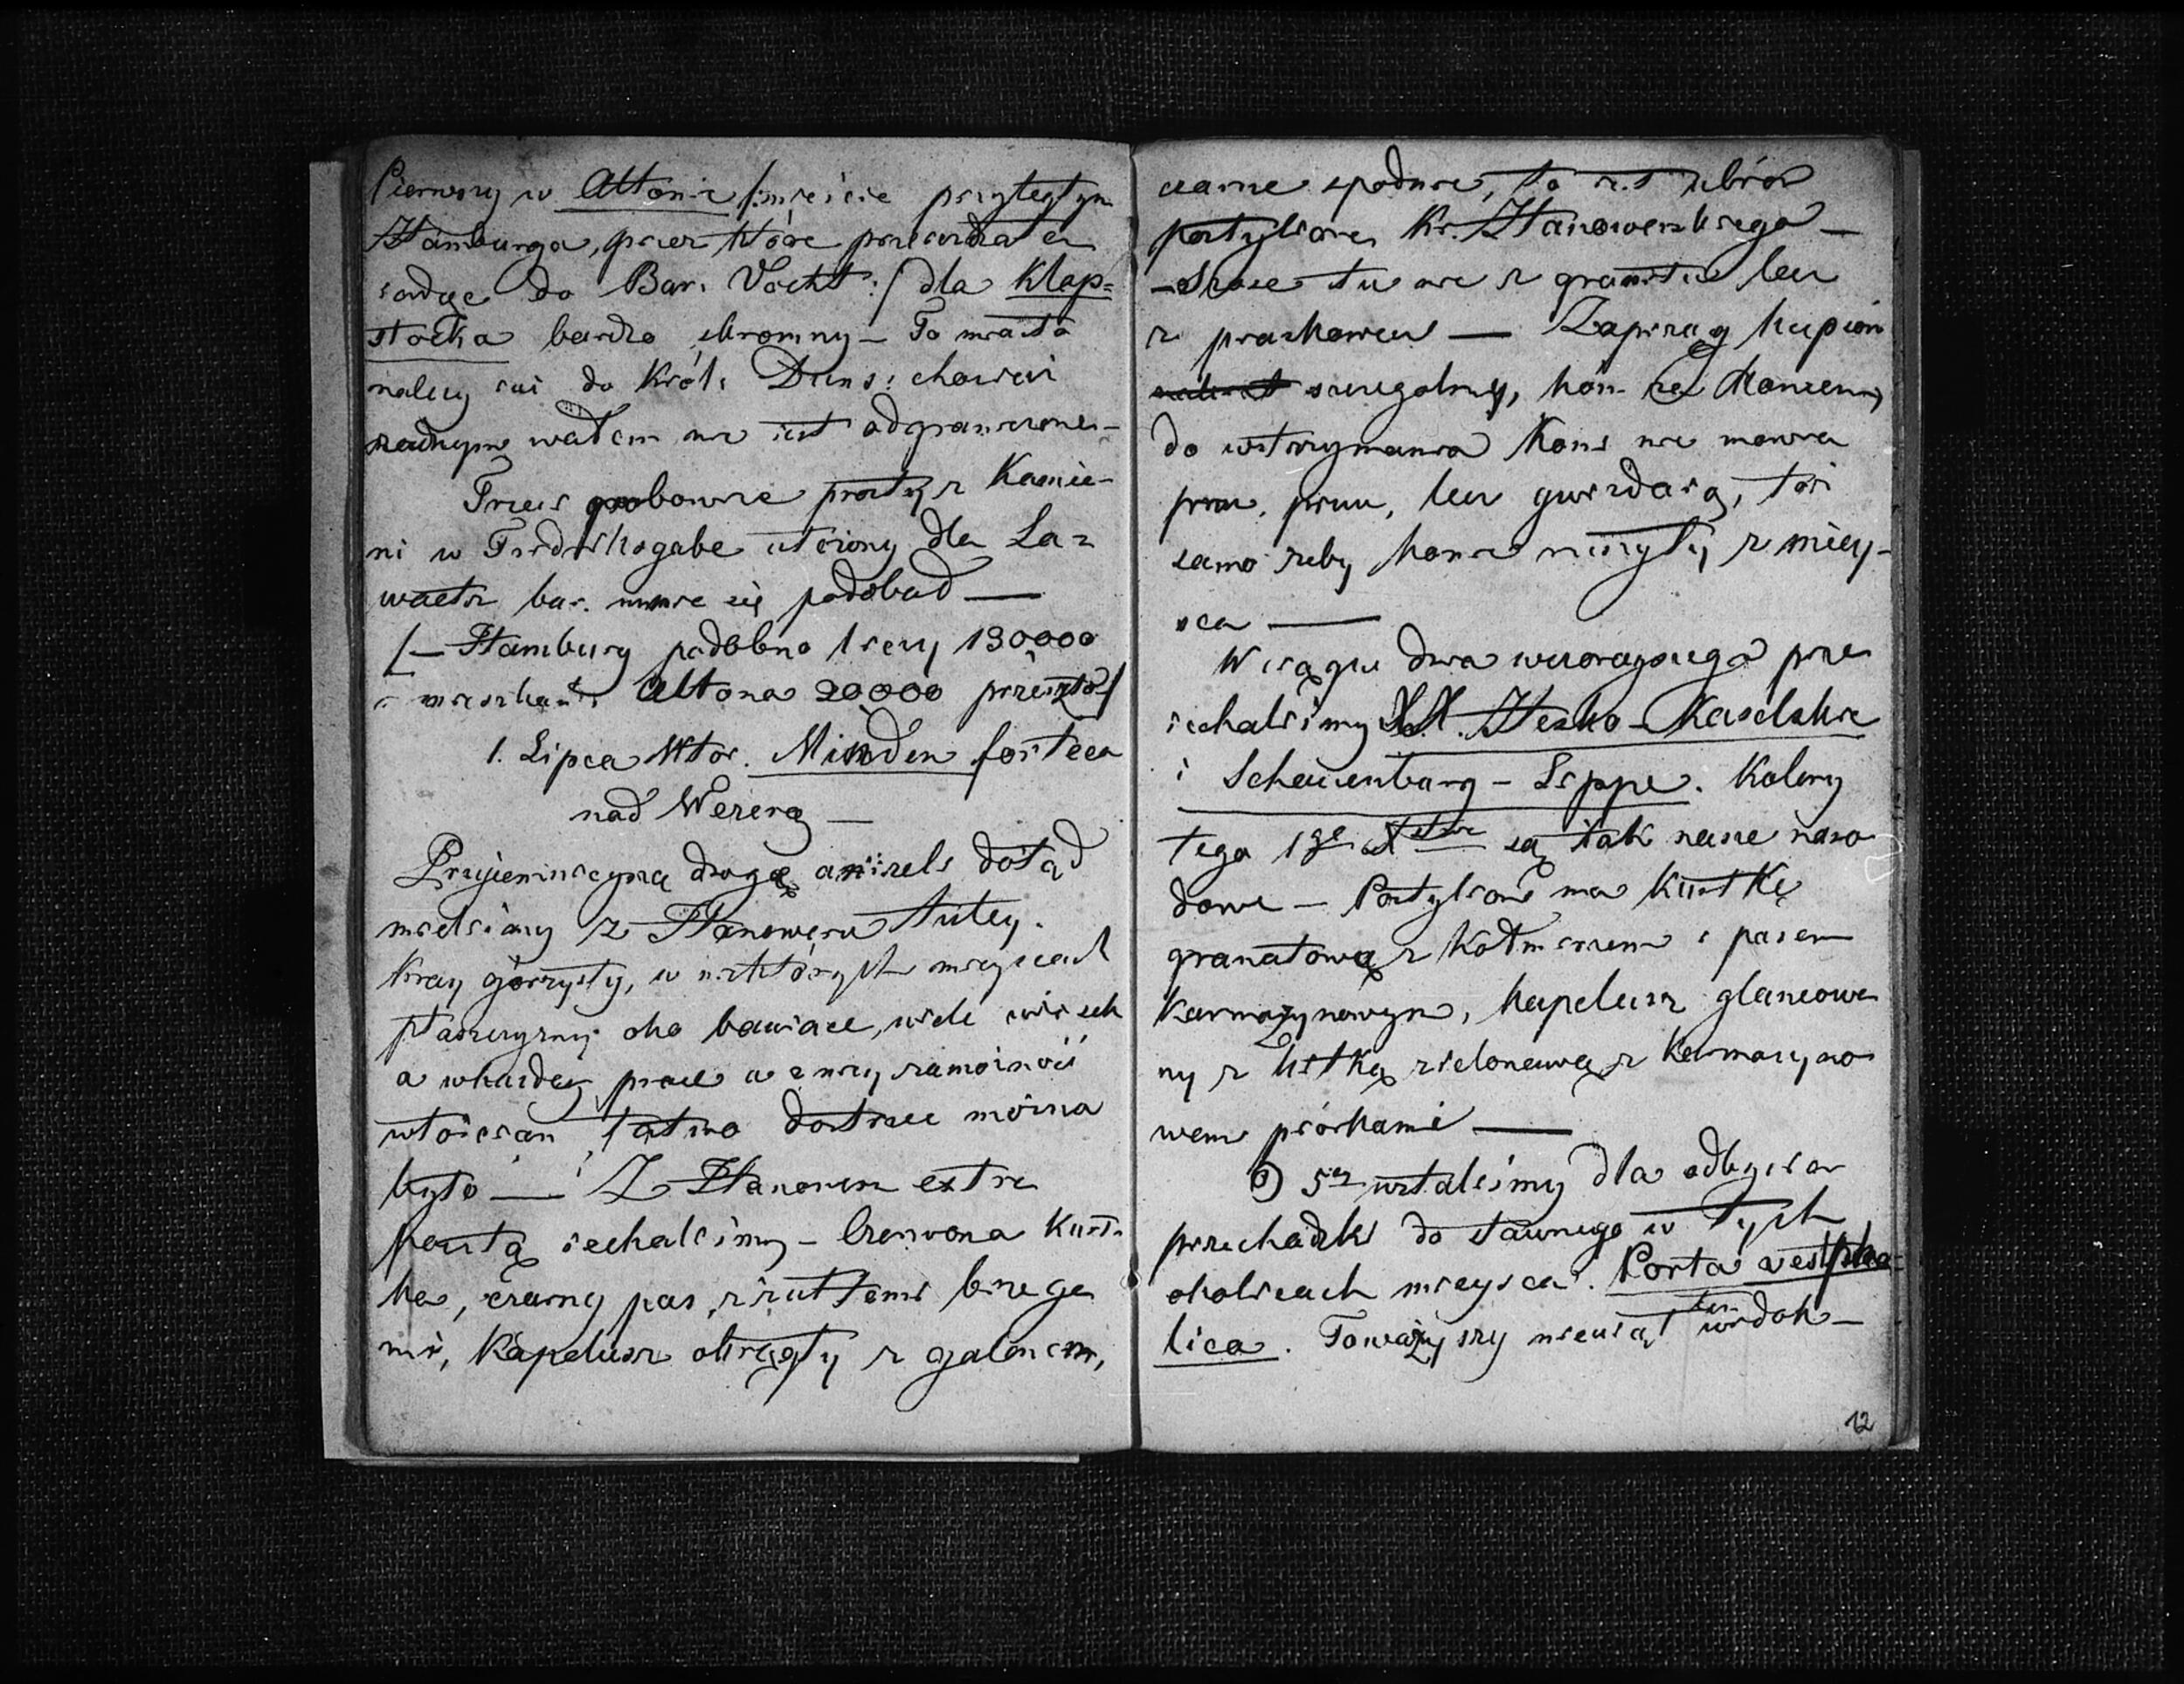 Pierwszy w Altonie /:mieście przyległym
Hamburga, przez które przejeżdża się
jadąc do Bar. Vocht:/ dla Klop=
stocka bardzo skromny — To miasto
należy już do Król. Duns: chociaż
żadnym wałem nie jest odgraniczone —
Trzeci grobowiec prosty z Kamie-
ni w utciony dla La=
watra bar. mnie się podobał —
/— Hamburg podobno liczy 130000
mieszkań: Altona 20000 przeszło/
1. Lipca Wtor. Minden forteca
nad Wezerą —
Przyjemnieyszą drogę aniżeli dotąd
mieliśmy z Hanoweru tutey.
Kray górzysty, w niektórych mieyscach
płaszczyzny oko bawiące, wiele wiosek
a w każdey pracę a zamożność
włościan łatwo dostrzec można
było — Z Hanoweru extra
pocztą jechaliśmy — Czerwona Kurt-
ka, czarny pas z żółtemi brzega
mi, Kapelusz okrągły z galonem,
czarne spodnie, to jest ubiór
postyliona Kr. Hanowerskiego —
— Szose tu nie z granitu lecz
z piaskowcu — Zaprząg kupion
szczególny, koń
do wstrzymania Koni nie mówią
prru, prruu, lecz gwiżdaią, toż
samo żeby konie ruszyły z miey-
sca —
W ciągu dnia wczorayszego prze
jechaliśmy XX. Hesko-Kaselskie
i Schauenburg - Lippe. Kolory
tego 1go Xstwa są tak nasze naro
dowe — Postylion ma Kurtkę
granatową z kołnierzem i pasem
Karmazynowym, kapelusz glancowa
ny z kitką zieloną z Karmazyno
wemi piórkami —
O 5ey wstaliśmy dla odbycia
przechadzki do sławnego w tych
okolicach mieysca. Porta vestpha-
lica. Towarzyszy nieciął ten widok —
12